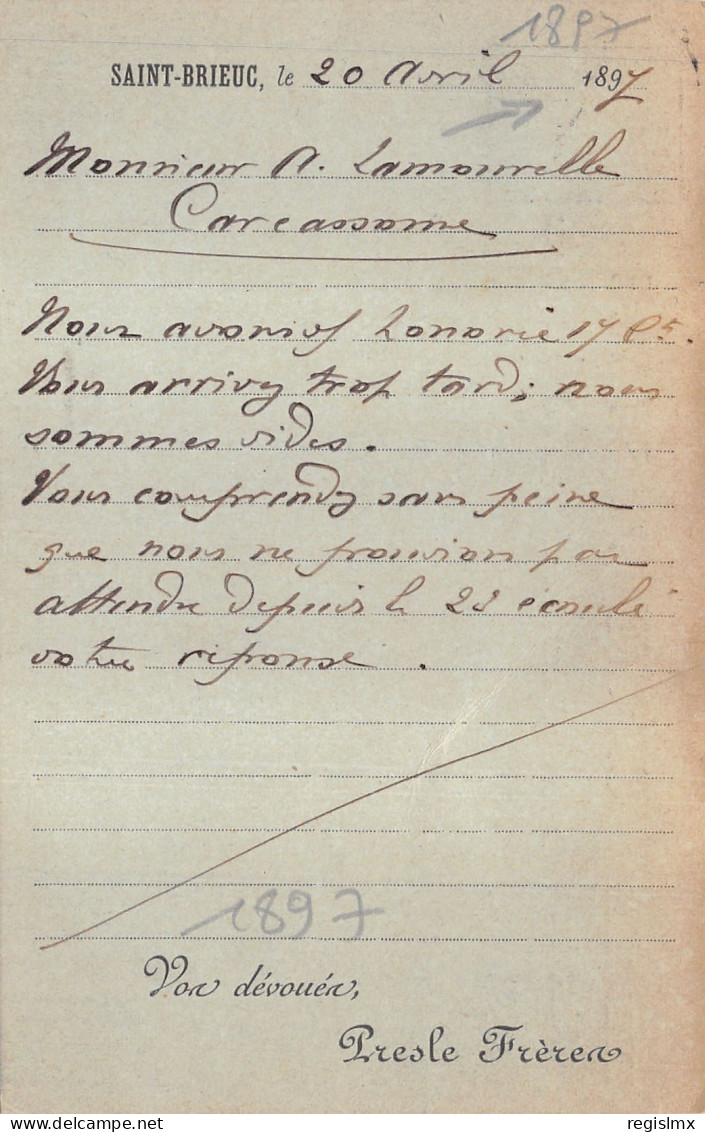 1897
SAINT-BRIEUC, le 20 Avril 1897
Monsieur A. Lamourelle
Carcassonne
Nous
Vous arrivez trop tard; nous
sommes vides.
Vous comprendrez sans peine
que nous ne pouvions pas
attendre depuis le 23 écoulé
votre réponse.
1897
Vos dévoués,
Presle Frères
www.delcampe.net
regislmx